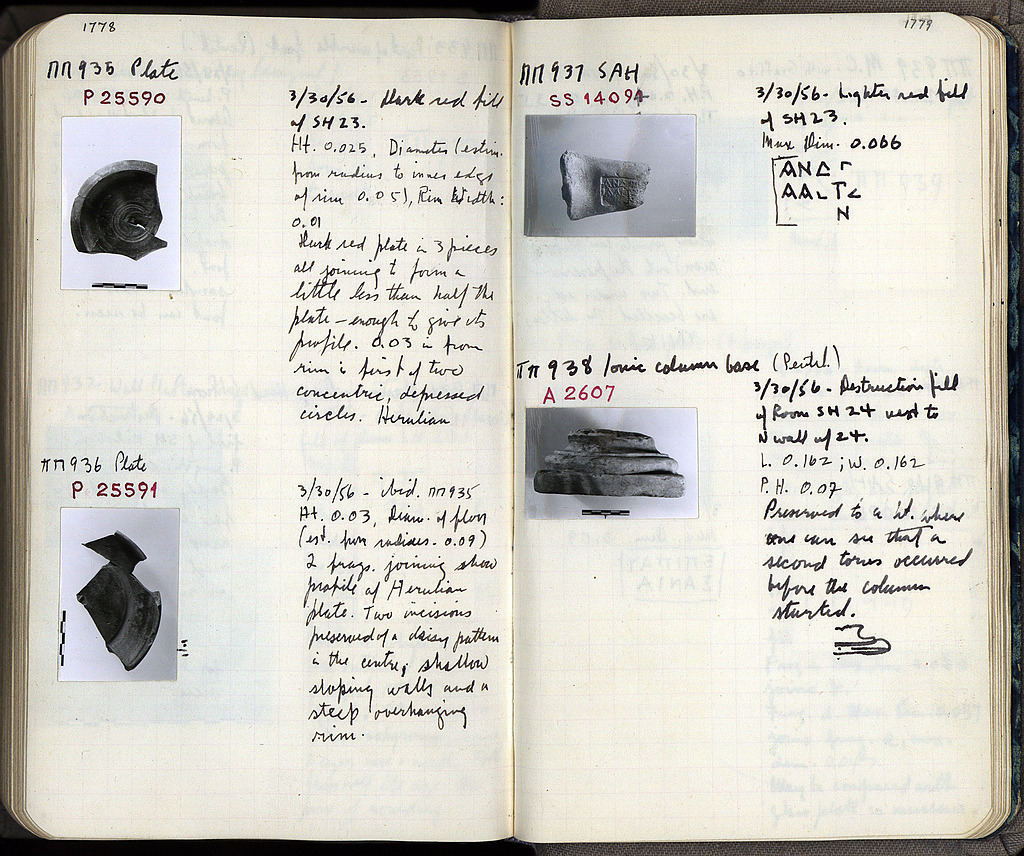 1778
ΠΠ 935 Plate
P 25590
3/30/56 - Dark red fill
of SH 23.
Ht. 0.025, Diameter (estim.
from radius to inner edge
of rim 0.05), Rim Width:
0.01
Dark red plate in 3 pieces
all joining to form a
little less than half the
plate - enough to give its
profile. 0.03 in from
rim is first of two
concentric, depressed
circles. Herulian
ΠΠ 936 Plate
P 25591
3/30/56 - ibid. ΠΠ 935
Ht. 0.03, Diam. of floor
(est. from radius - 0.09)
2 frags. joining show
profile of Herulian
plate. Two incisions
preserved of a daisy pattern
in the centre, shallow
sloping walls and a
steep overhanging
rim.
1779
ΠΠ 937 SAH
SS 14094
3/30/56 - Lighter red fill
of SH 23.
Max Dim. 0.066
ΑΝΔΓ
ΑΑLΤ<
Ν
ΠΠ 938 Ionic column base (Pentel.)
A 2607
3/30/56 - Destruction fill
of Room SH 24 next to
N wall of 24.
L. 0.162; W. 0.162
P.H. 0.07
Preserved to a ht. where
one can see that a
second torus occurred
before the column
started.